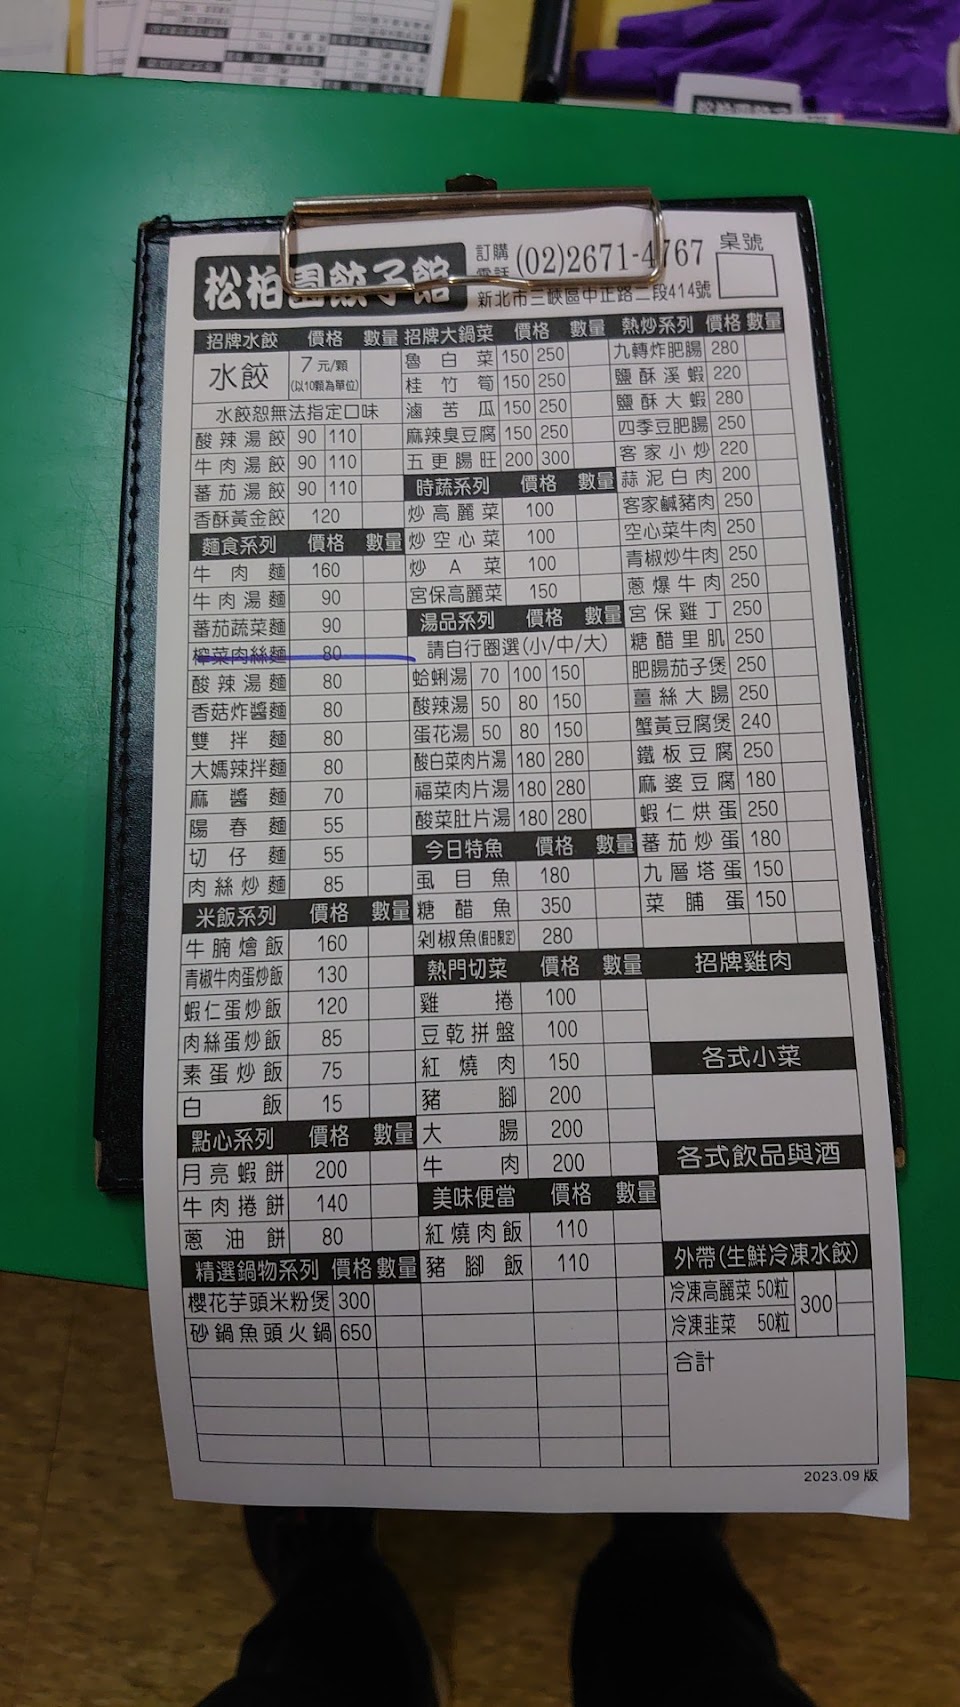 松柏園餃子館
訂購電話 (02)2671-4767
新北市三峽區中正路二段414號
桌號
招牌水餃 價格 數量
水餃 7元/顆 (以10顆為單位)
水餃恕無法指定口味
酸辣湯餃 90 110
牛肉湯餃 90 110
蕃茄湯餃 90 110
香酥黃金餃 120
麵食系列 價格 數量
牛肉麵 160
牛肉湯麵 90
蕃茄蔬菜麵 90
榨菜肉絲麵 80
酸辣湯麵 80
香菇炸醬麵 80
雙拌麵 80
大媽辣拌麵 80
麻醬麵 70
陽春麵 55
切仔麵 55
肉絲炒麵 85
米飯系列 價格 數量
牛腩燴飯 160
青椒牛肉蛋炒飯 130
蝦仁蛋炒飯 120
肉絲蛋炒飯 85
素蛋炒飯 75
白飯 15
點心系列 價格 數量
月亮蝦餅 200
牛肉捲餅 140
蔥油餅 80
精選鍋物系列 價格 數量
櫻花芋頭米粉煲 300
砂鍋魚頭火鍋 650
招牌大鍋菜 價格 數量
魯白菜 150 250
桂竹筍 150 250
滷苦瓜 150 250
麻辣臭豆腐 150 250
五更腸旺 200 300
時蔬系列 價格 數量
炒高麗菜 100
炒空心菜 100
炒A菜 100
宮保高麗菜 150
湯品系列 價格 數量
請自行圈選(小/中/大)
蛤蜊湯 70 100 150
酸辣湯 50 80 150
蛋花湯 50 80 150
酸白菜肉片湯 180 280
福菜肉片湯 180 280
酸菜肚片湯 180 280
今日特魚 價格 數量
虱目魚 180
糖醋魚 350
剁椒魚(假日限定) 280
熱門切菜 價格 數量
雞捲 100
豆乾拼盤 100
紅燒肉 150
豬腳 200
大腸 200
牛肉 200
美味便當 價格 數量
紅燒肉飯 110
豬腳飯 110
熱炒系列 價格 數量
九轉炸肥腸 280
鹽酥溪蝦 220
鹽酥大蝦 280
四季豆肥腸 250
客家小炒 220
蒜泥白肉 200
客家鹹豬肉 250
空心菜牛肉 250
青椒炒牛肉 250
蔥爆牛肉 250
宮保雞丁 250
糖醋里肌 250
肥腸茄子煲 250
薑絲大腸 250
蟹黃豆腐煲 240
鐵板豆腐 250
麻婆豆腐 180
蝦仁烘蛋 250
蕃茄炒蛋 180
九層塔蛋 150
菜脯蛋 150
招牌雞肉
各式小菜
各式飲品與酒
外帶(生鮮冷凍水餃)
冷凍高麗菜 50粒 300
冷凍韭菜 50粒
合計
2023.09 版